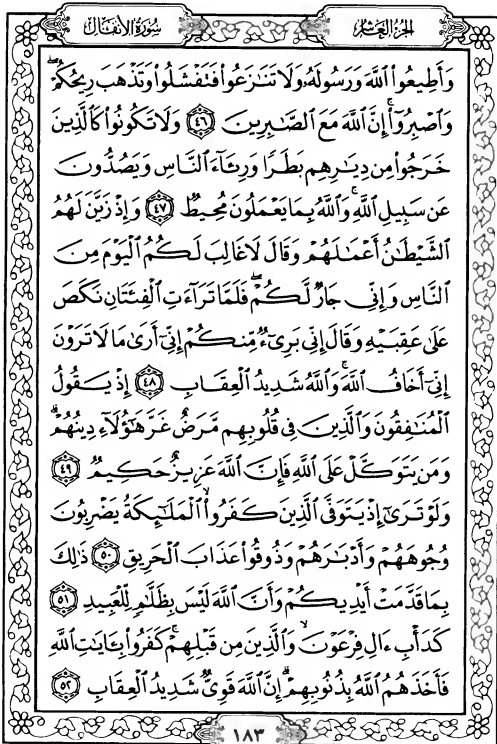 سُورَةُ الأَنفَال
الجُزءُ العَاشِر
وَأَطِيعُواْ ٱللَّهَ وَرَسُولَهُۥ وَلَا تَنَٰزَعُواْ فَتَفۡشَلُواْ وَتَذۡهَبَ رِيحُكُمۡۖ
وَٱصۡبِرُوٓاْۚ إِنَّ ٱللَّهَ مَعَ ٱلصَّٰبِرِينَ ٤٦ وَلَا تَكُونُواْ كَٱلَّذِينَ
خَرَجُواْ مِن دِيَٰرِهِم بَطَرٗا وَرِئَآءَ ٱلنَّاسِ وَيَصُدُّونَ
عَن سَبِيلِ ٱللَّهِۚ وَٱللَّهُ بِمَا يَعۡمَلُونَ مُحِيطٞ ٤٧ وَإِذۡ زَيَّنَ لَهُمُ
ٱلشَّيۡطَٰنُ أَعۡمَٰلَهُمۡ وَقَالَ لَا غَالِبَ لَكُمُ ٱلۡيَوۡمَ مِنَ
ٱلنَّاسِ وَإِنِّي جَارٞ لَّكُمۡۖ فَلَمَّا تَرَآءَتِ ٱلۡفِئَتَانِ نَكَصَ
عَلَىٰ عَقِبَيۡهِ وَقَالَ إِنِّي بَرِيٓءٞ مِّنكُمۡ إِنِّيٓ أَرَىٰ مَا لَا تَرَوۡنَ
إِنِّيٓ أَخَافُ ٱللَّهَۚ وَٱللَّهُ شَدِيدُ ٱلۡعِقَابِ ٤٨ إِذۡ يَقُولُ
ٱلۡمُنَٰفِقُونَ وَٱلَّذِينَ فِي قُلُوبِهِم مَّرَضٌ غَرَّ هَٰٓؤُلَآءِ دِينُهُمۡۗ
وَمَن يَتَوَكَّلۡ عَلَى ٱللَّهِ فَإِنَّ ٱللَّهَ عَزِيزٌ حَكِيمٞ ٤٩
وَلَوۡ تَرَىٰٓ إِذۡ يَتَوَفَّى ٱلَّذِينَ كَفَرُواْ ٱلۡمَلَٰٓئِكَةُ يَضۡرِبُونَ
وُجُوهَهُمۡ وَأَدۡبَٰرَهُمۡ وَذُوقُواْ عَذَابَ ٱلۡحَرِيقِ ٥٠ ذَٰلِكَ
بِمَا قَدَّمَتۡ أَيۡدِيكُمۡ وَأَنَّ ٱللَّهَ لَيۡسَ بِظَلَّٰمٖ لِّلۡعَبِيدِ ٥١
كَدَأۡبِ ءَالِ فِرۡعَوۡنَۙ وَٱلَّذِينَ مِن قَبۡلِهِمۡۚ كَفَرُواْ بِـَٔايَٰتِ ٱللَّهِ
فَأَخَذَهُمُ ٱللَّهُ بِذُنُوبِهِمۡۗ إِنَّ ٱللَّهَ قَوِيّٞ شَدِيدُ ٱلۡعِقَابِ ٥٢
١٨٣